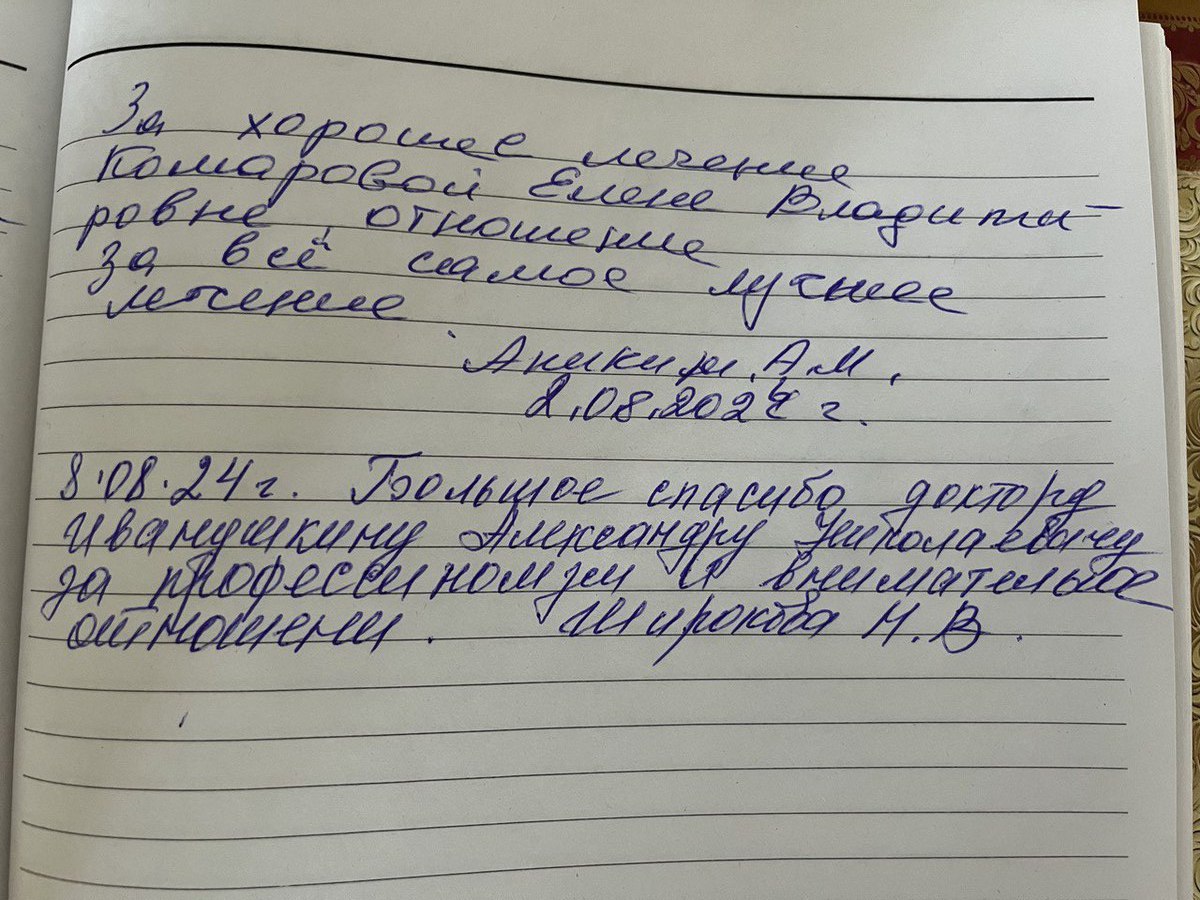 За хорошее лечение
Комаровой Елене Владими-
ровне, отношение
за всё самое лучшее
лечение
Аникин А.М.
2.08.2024 г.
8.08.24г. Большое спасибо доктору
Иванушкину Александру Николаевичу
за професситномзм и внимательное
отношени. Широкова Н.В.